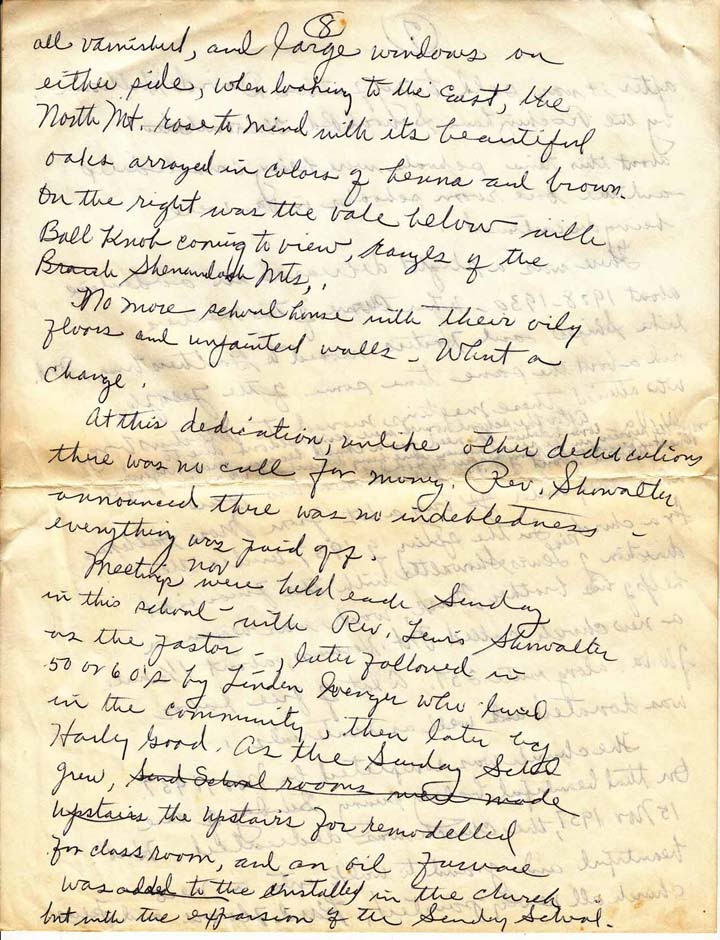 8
all varnished, and large windows on
either side, when looking to the East, the
North Mt. rose to mind with its beautiful
oaks arrayed in colors of henna and brown.
On the right was the vale below with
Ball Knob coming to view, ranges of the
Shenandoah Mts,.
No more school house with their oily
floors and unpainted walls - What a
change.
At this dedication, unlike other dedications
there was no call for money. Rev. Showalter
announced there was no indebtedness -
everything was paid off.
Meetings nor were held each Sunday
in this school - with Rev. Lewis Showalter
as the pastor -, later followed in
50 or 60's by Linden Wenger who lived
in the community, then later by
Harley Good. As the Sunday School
grew, Sund School rooms were made
upstairs the upstairs for remodelled
for class room, and an oil furnace
was added to the installed in the church
but with the expansion of the Sunday School.